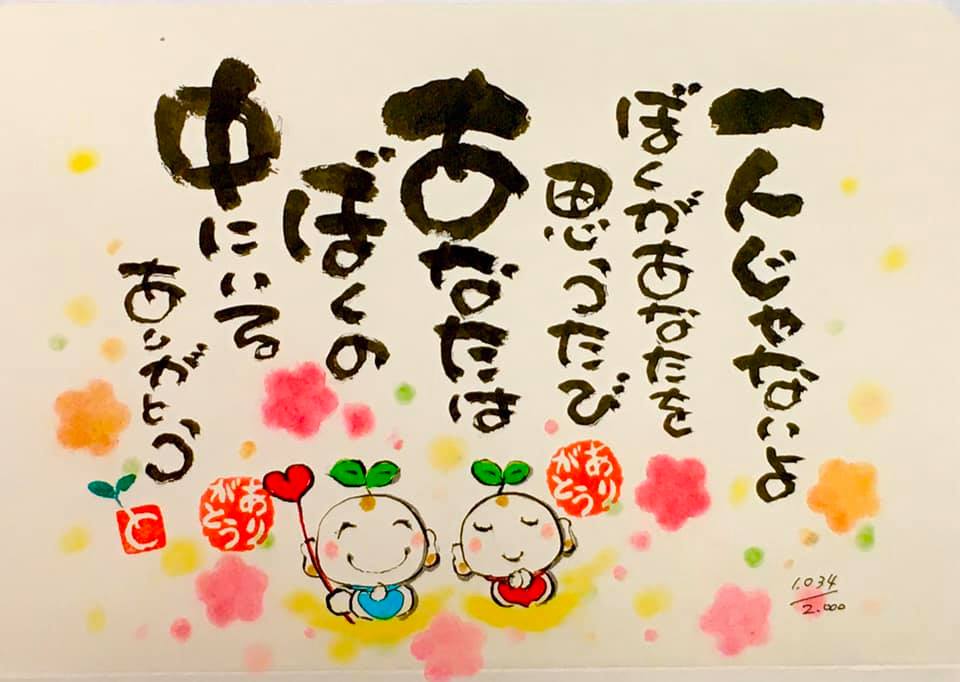 一人じゃないよ
ぼくがあなたを
思うたび
あなたは
ぼくの
中にいる
ありがとう
ありがとう
ありがとう
1.034
2.000